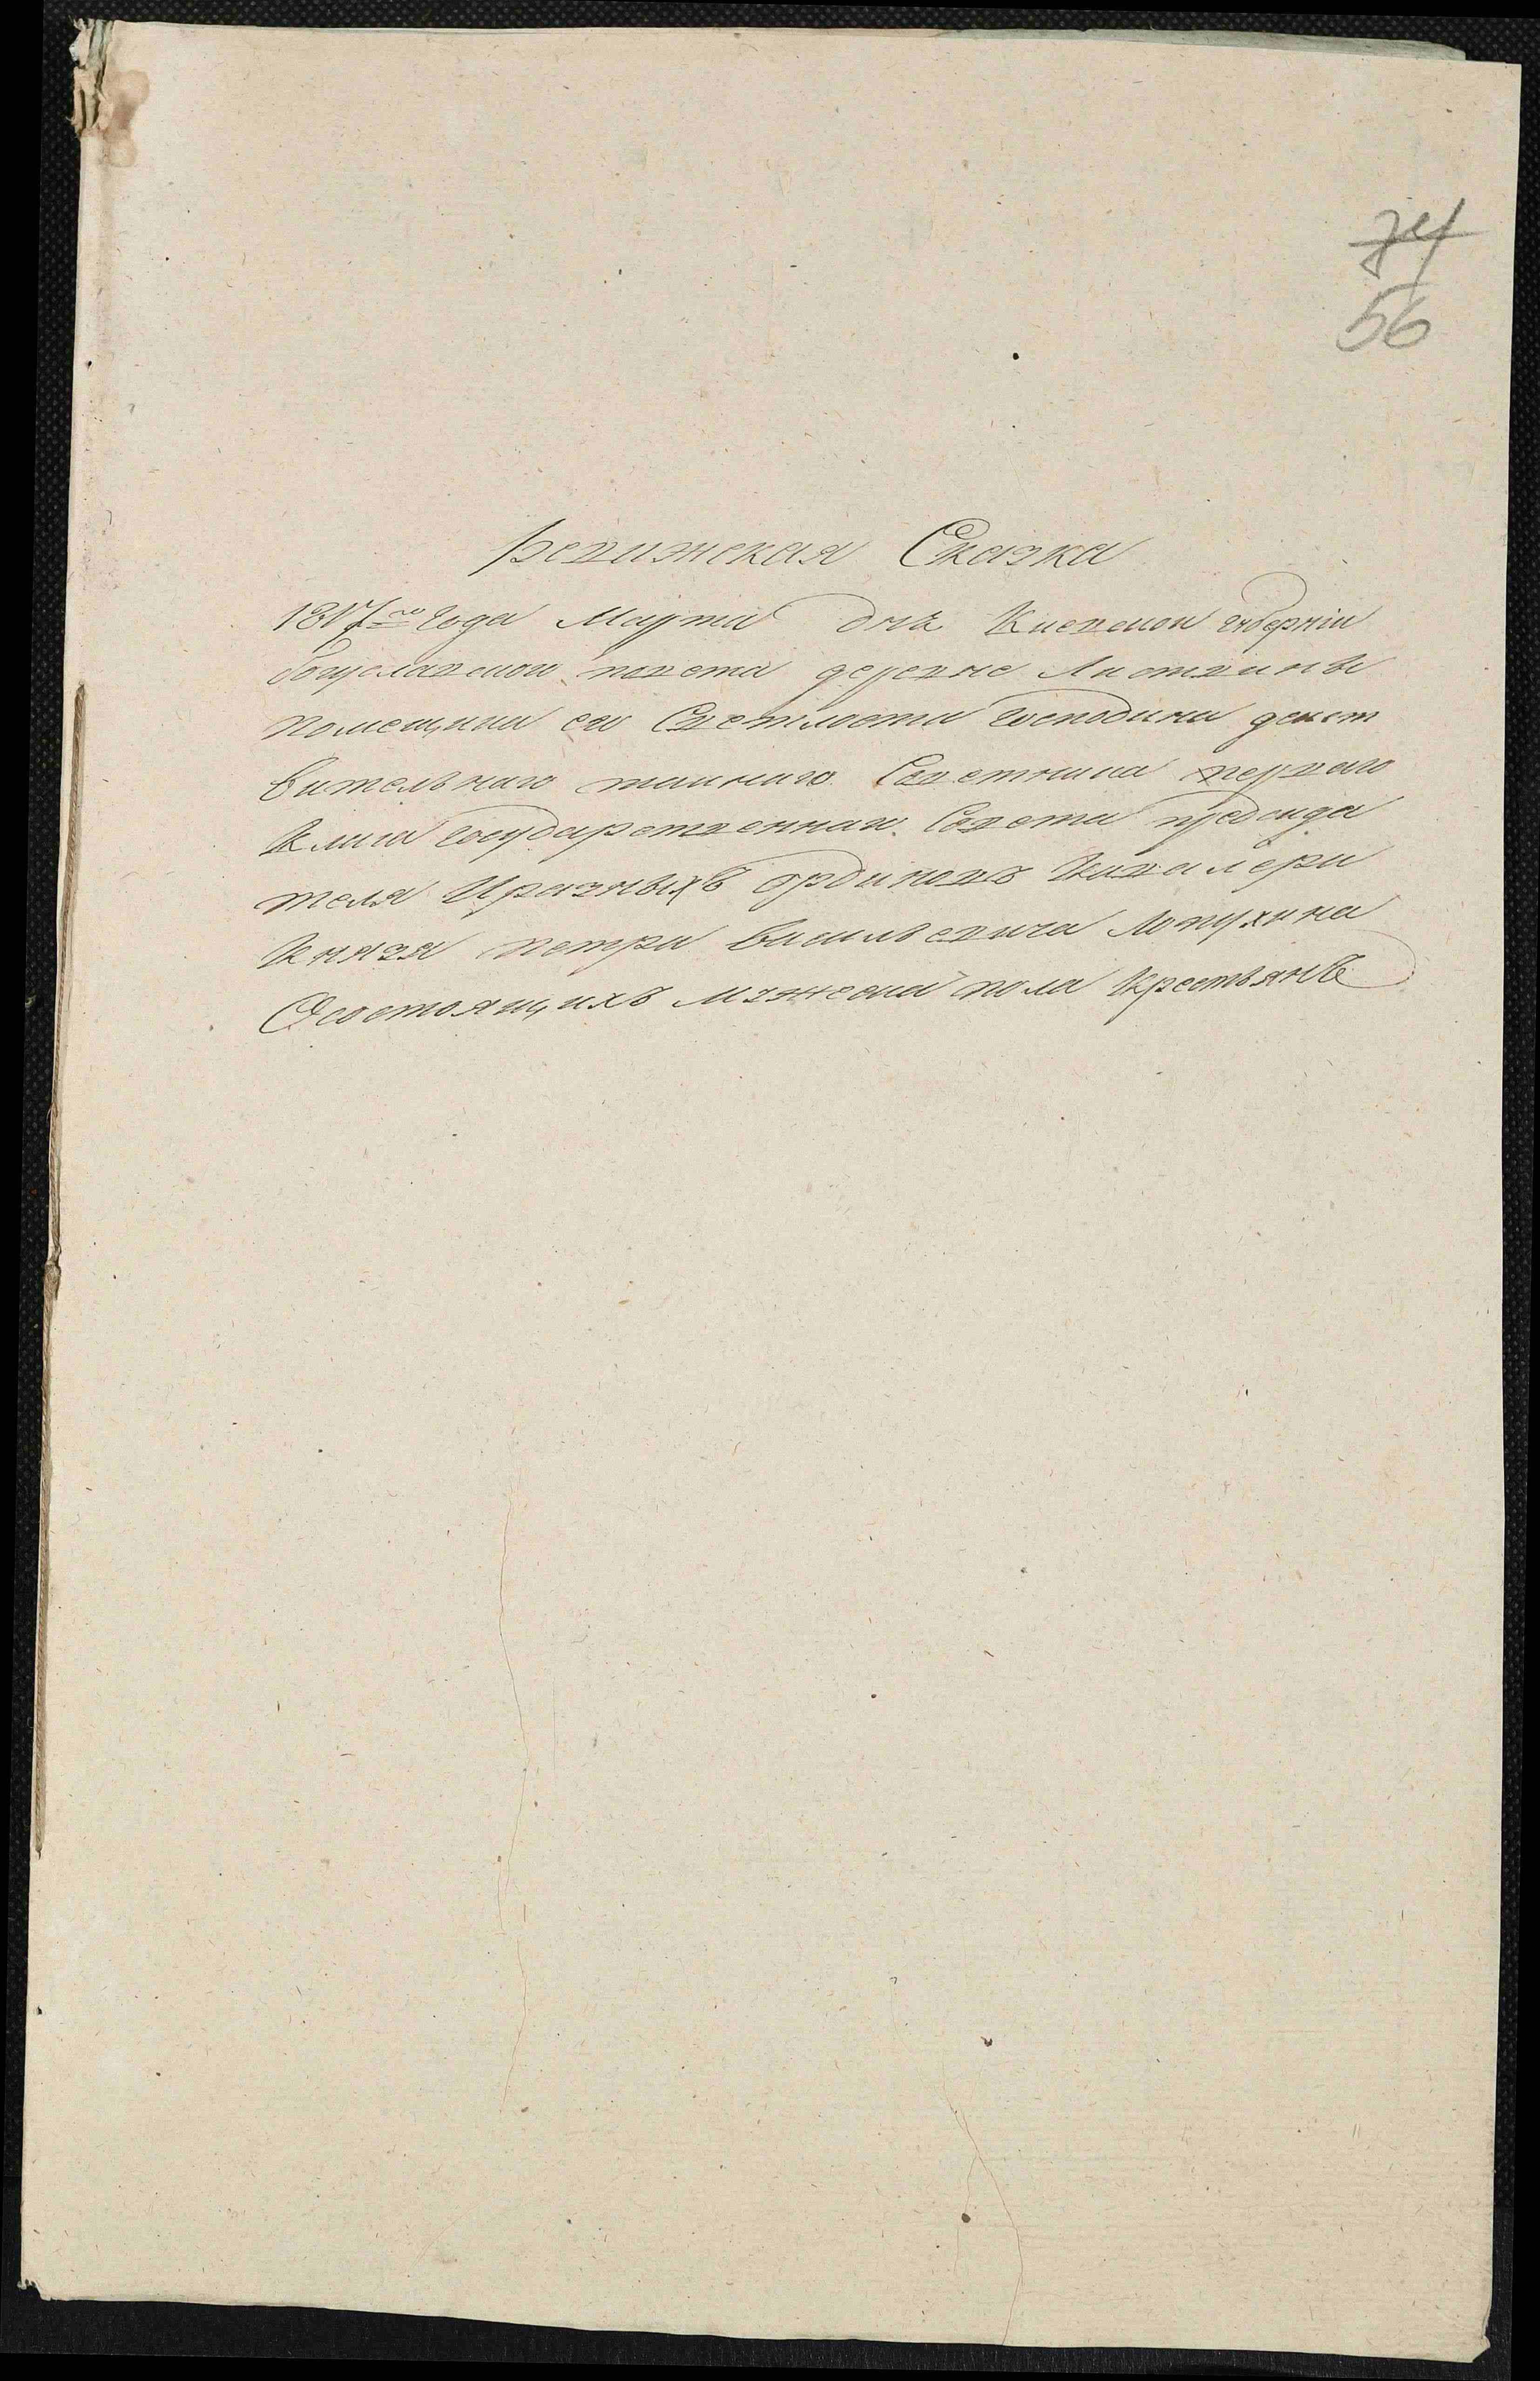 74
56
Ревижская Сказка
1817го года Марта дня Киевской губернiи
богуславской повета деревне Листвины
помещика его Светлости Господина деист
вительнаго таинаго Советника перваго
Класа Государственнаго Совета председа
теля Иразныхъ ординовъ Кавалера
Князя петра василъевича Лопухина
Осостоящихъ мужеска пола Крестьянѣ